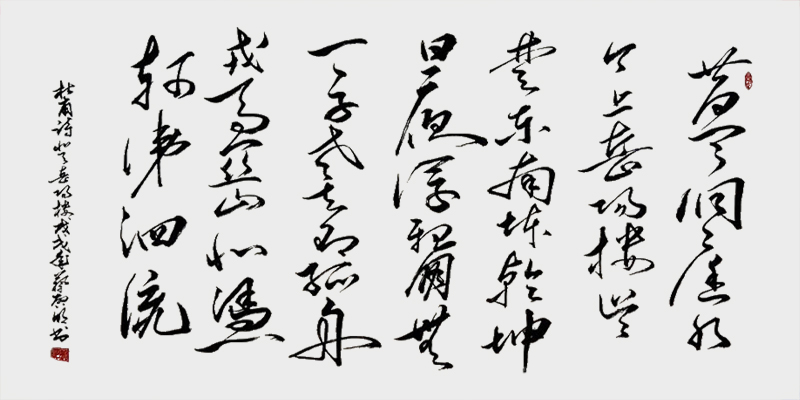 昔闻洞庭水
今上岳阳楼吴
楚东南坼乾坤
日夜浮親朋無
一字老孤舟
戎马関山北憑
軒涕泗流
杜甫诗登岳阳楼戊戌